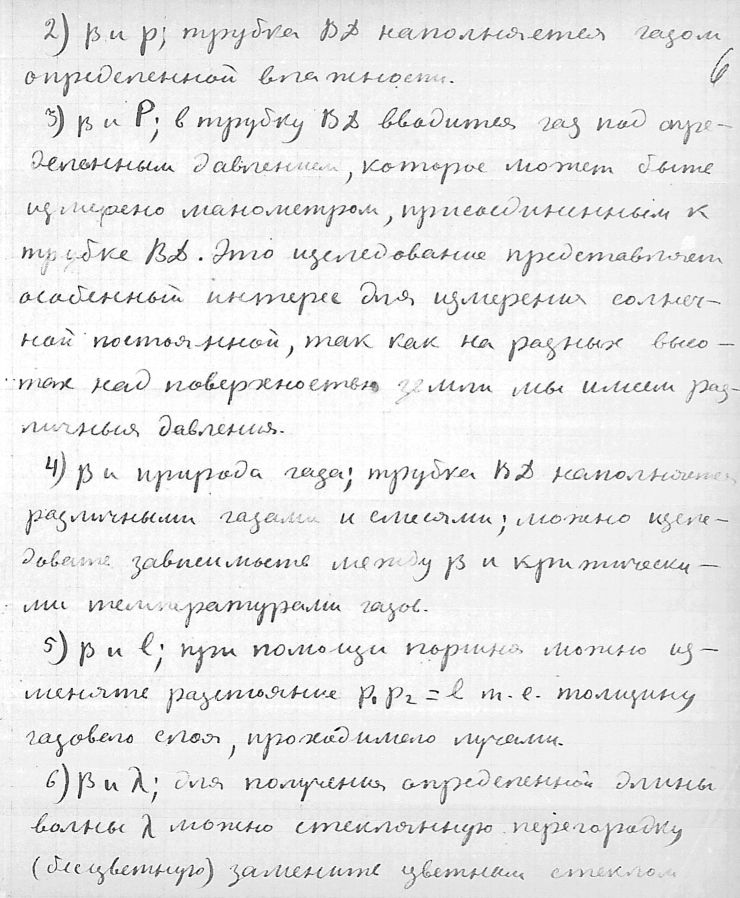 2) β и p; трубка ВД наполняется газом
определенной влажности.
6
3) β и P; в трубку ВД вводится газ под опре-
деленным давлением, которое может быть
измерено манометром, присоединенным к
трубке ВД. Это изследование представляет
особенный интерес для измерения солнеч-
ной постоянной, так как на разных высо-
тах над поверхностью земли мы имеем раз-
личныя давления.
4) β и природа газа; трубка ВД наполняется
различными газами и смесями; можно изсле-
довать зависимость между β и критически-
ми температурами газов.
5) β и l; при помощи поршня можно из-
менять разстояние p₁ p₂ = l т.е. толщину
газового слоя, проходимого лучами.
6) β и λ; для получения определенной длины
волны λ можно стеклянную перегородку
(бесцветную) заменить цветным стеклом